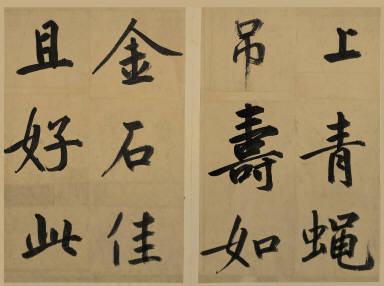 上青蝇
吊寿如
金石佳
且好此